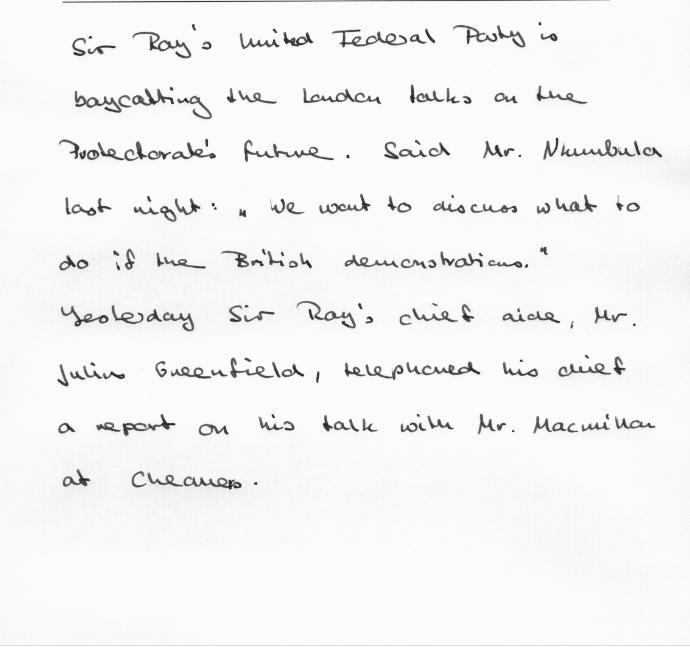 Sir Roy's United Federal Party is
boycatting the London talks on the
Protectorate's future. Said Mr. Nkumbula
last night: „ We want to discuss what to
do if the British demonstrations."
Yesterday Sir Roy's chief aide, Mr.
Julius Greenfield, telephoned his chief
a report on his talk with Mr. Macmillan
at